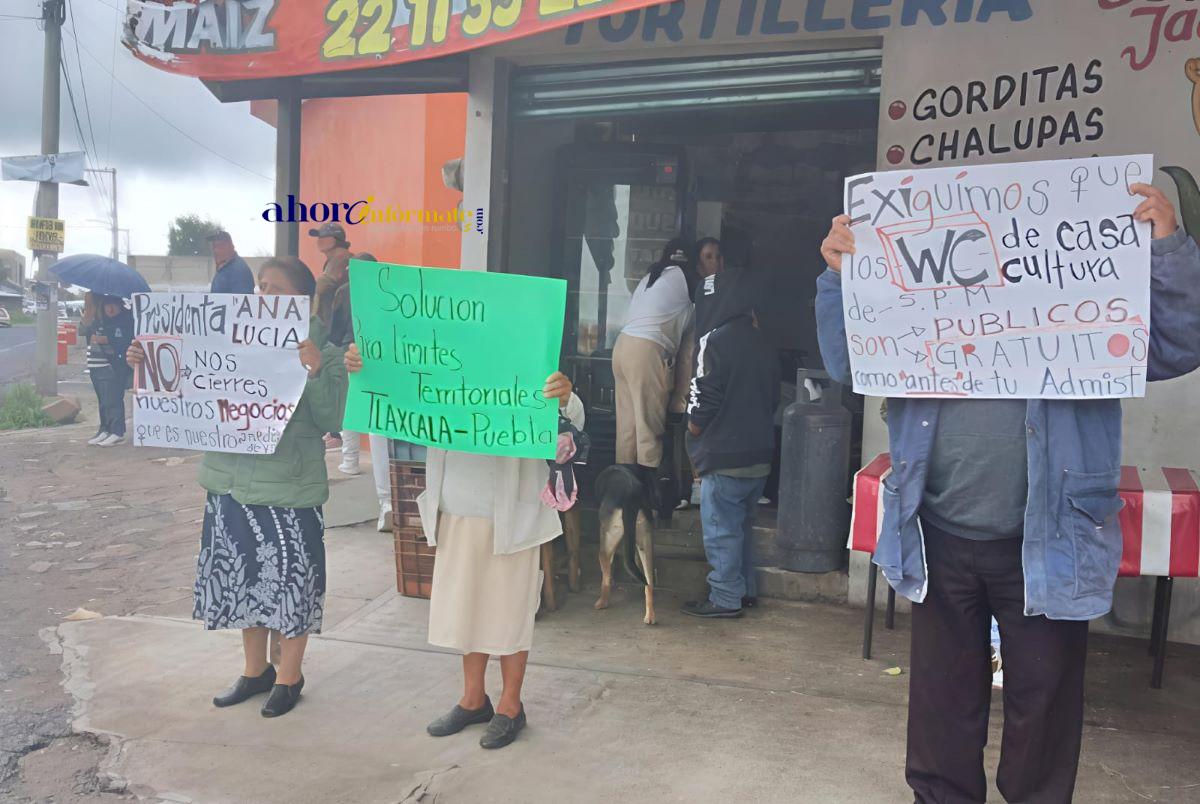 MAÍZ
TORTILLERÍA
GORDITAS
CHALUPAS
ahora infórmate
.com
Presidenta "ANA
LUCIA
NO NOS
cierres
nuestros negocios
que es nuestro
Solucion
Para límites
Territoriales
TLAXCALA-Puebla
Exiguímos que
los W.C de casa
cultura
de-S.P.M
son→ PUBLICOS
→ GRATUITOS
como "antes" de tu Admist